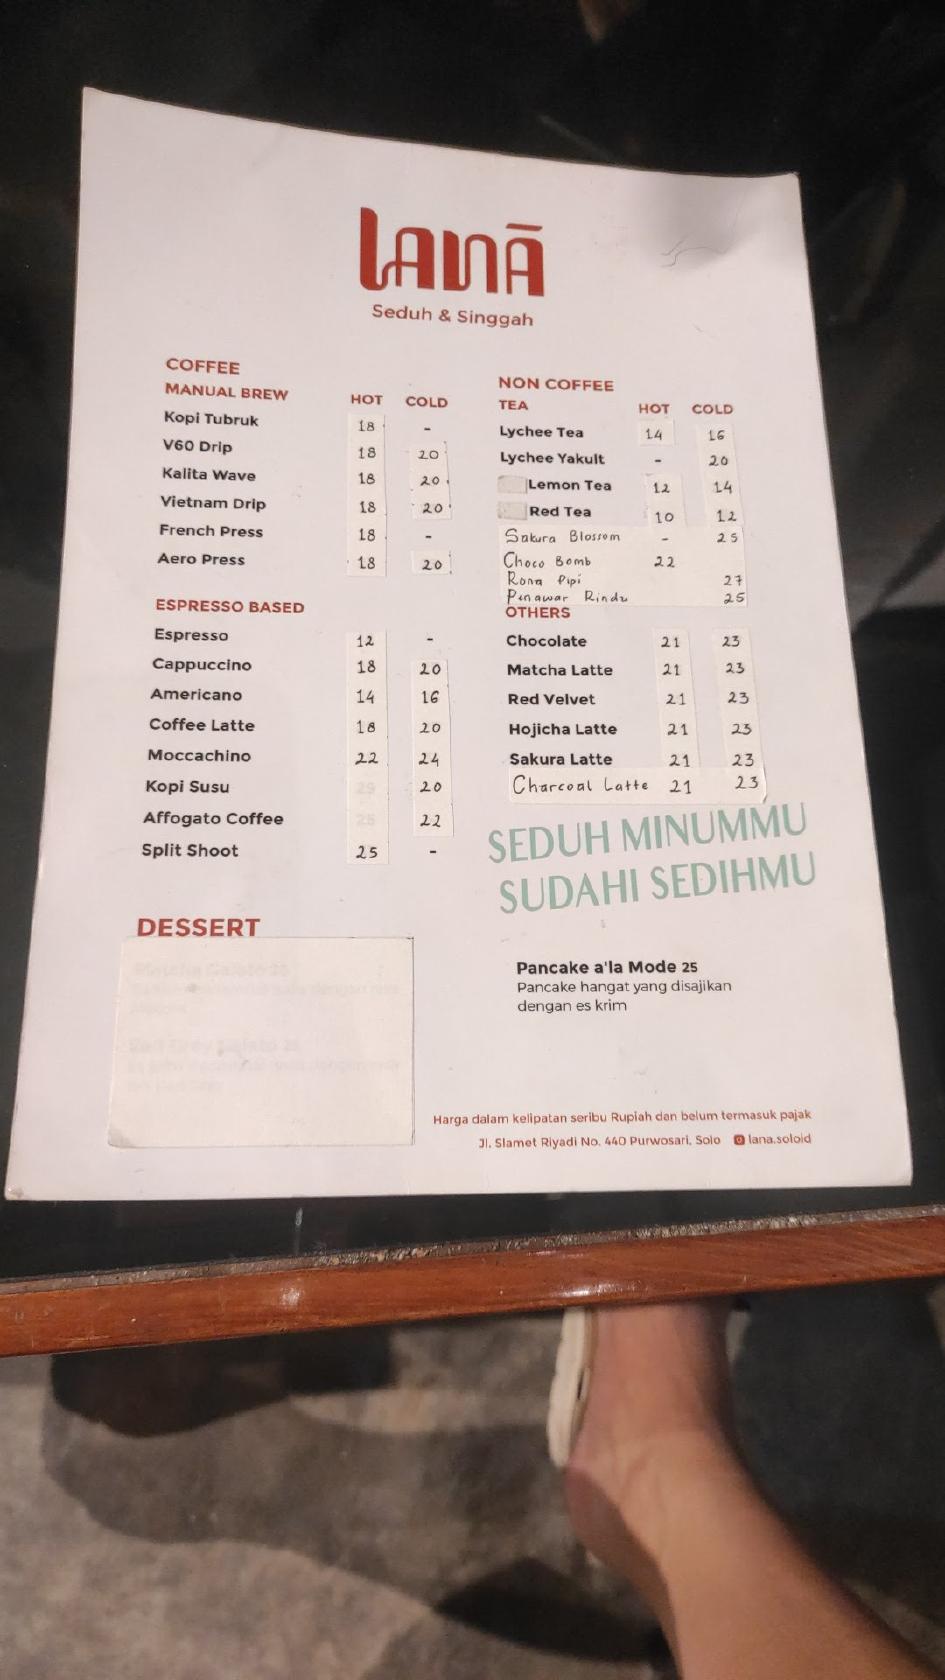 lanā
Seduh & Singgah
COFFEE
MANUAL BREW HOT COLD
Kopi Tubruk 18 -
V60 Drip 18 20
Kalita Wave 18 20
Vietnam Drip 18 20
French Press 18 -
Aero Press 18 20
ESPRESSO BASED
Espresso 12 -
Cappuccino 18 20
Americano 14 16
Coffee Latte 18 20
Moccachino 22 24
Kopi Susu 20
Affogato Coffee 22
Split Shoot 25 -
NON COFFEE
TEA HOT COLD
Lychee Tea 14 16
Lychee Yakult - 20
Lemon Tea 12 14
Red Tea 10 12
Sakura Blossom - 25
Choco Bomb 22
Rona Pipi 27
Penawar Rindu 25
OTHERS
Chocolate 21 23
Matcha Latte 21 23
Red Velvet 21 23
Hojicha Latte 21 23
Sakura Latte 21 23
Charcoal Latte 21 23
SEDUH MINUMMU
SUDAHI SEDIHMU
DESSERT
Pancake a'la Mode 25
Pancake hangat yang disajikan
dengan es krim
Harga dalam kelipatan seribu Rupiah dan belum termasuk pajak
Jl. Slamet Riyadi No. 440 Purwosari, Solo lana.soloid